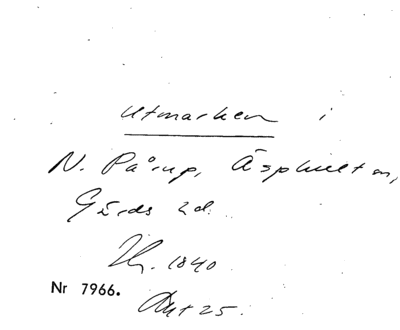 Utmarken i
N. Pårup, Äsphult sn,
Gärds hd.
Hr. 1840
Nr 7966.
Akt 25.